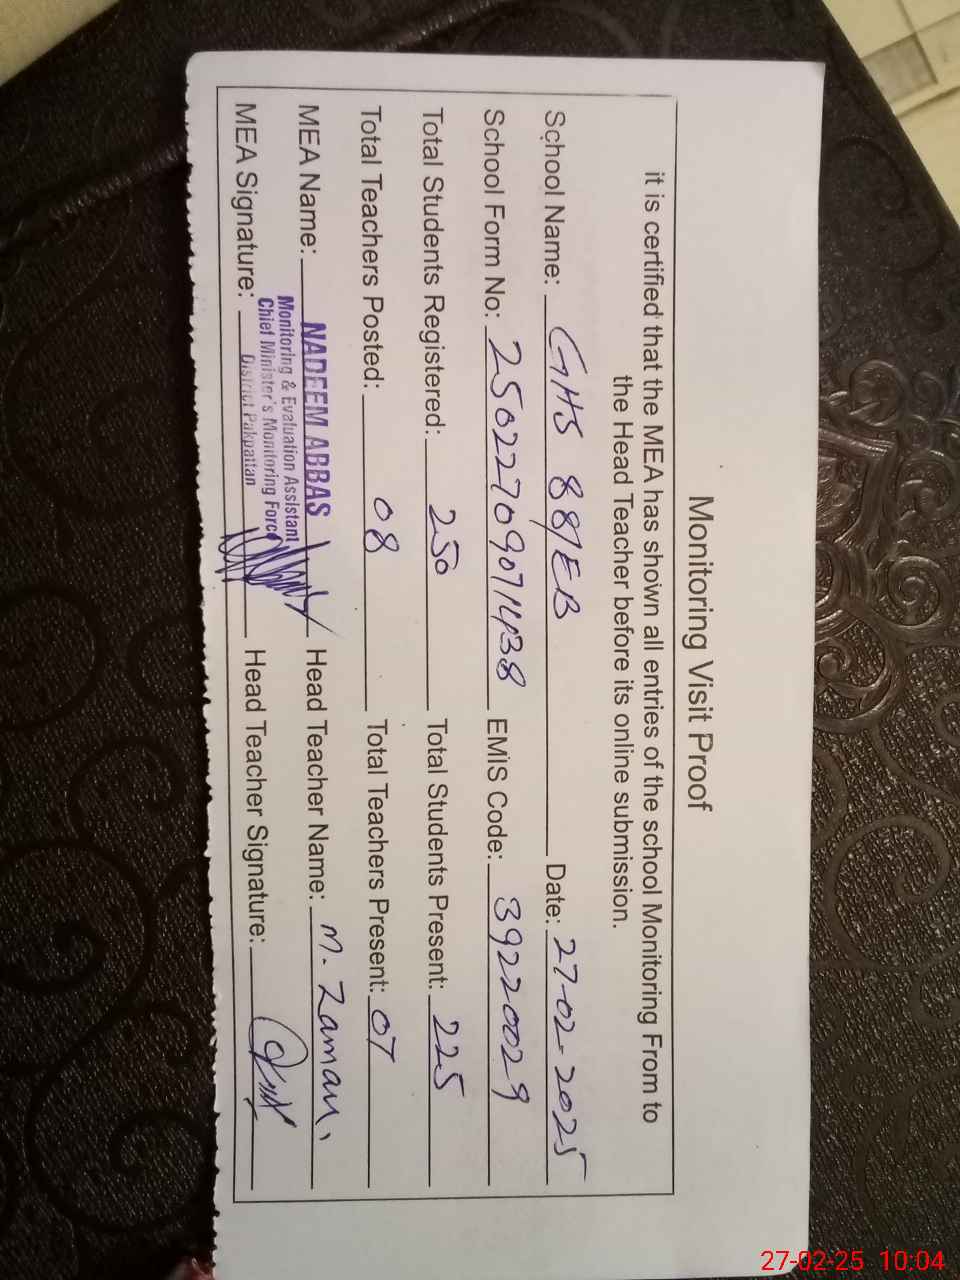 Monitoring Visit Proof
it is certified that the MEA has shown all entries of the school Monitoring From to
the Head Teacher before its online submission.
School Name: GHS 88/EB Date: 27-02-2025
School Form No: 25022709071438 EMIS Code: 39220029
Total Students Registered: 250 Total Students Present: 225
Total Teachers Posted: 08 Total Teachers Present: 07
MEA Name: NADEEM ABBAS Head Teacher Name: M. Zaman
Monitoring & Evaluation Assistant
Chief Minister's Monitoring Force
MEA Signature: District Pakpattan Head Teacher Signature:
27-02-25 10:04